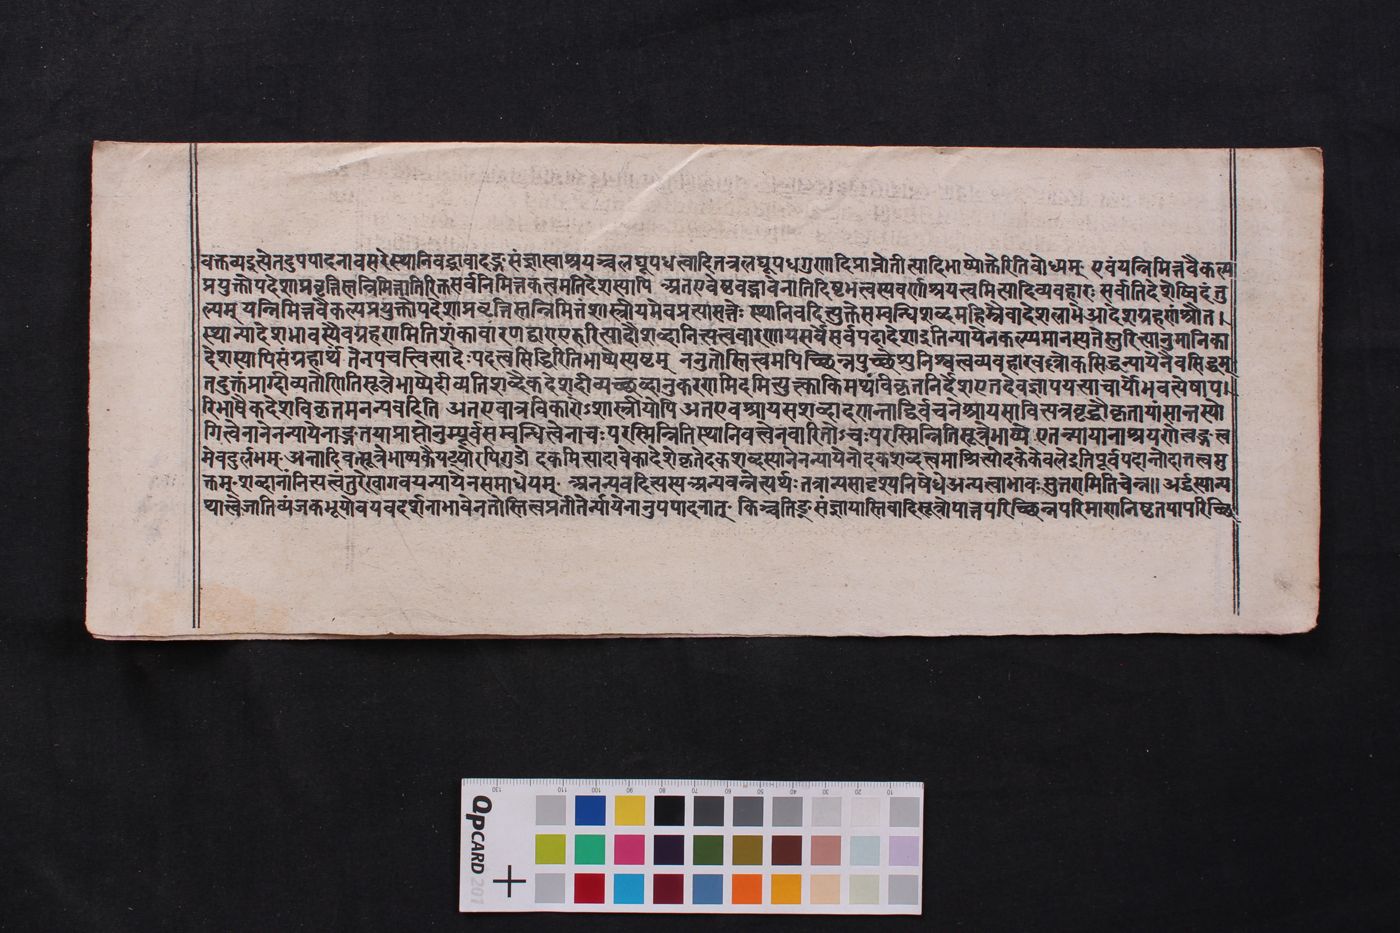 वक्तव्यइत्येतदुपपादनावसरेस्थानिवद्भावादङ्गसंज्ञास्वाश्रयन्त्वलघूपधत्वादितत्रलघूपधगुणादिप्राप्नोतीत्यादिभाष्योक्तेरितिबोध्यम् एवंयन्निमित्तवैकल्य
प्रयुक्तौपदेशाप्रवृत्तिस्तन्निमित्तातिरिक्तसर्वनिमित्तकत्वमतिदेशस्यापि अतएवेष्टवद्भावेनातिदिष्टभत्वस्यवर्णाश्रयत्वमित्यादिव्यवहारः सर्वातिदेशेष्विदंतु
ल्यम् यन्निमित्तवैकल्यप्रयुक्तोपदेशाप्रवृत्तिस्तन्निमित्तंशास्त्रीयमेवप्रत्यासत्तेः स्थानिवदित्युक्तेसम्बन्धिशब्दमहिम्नैवादेशलाभेआदेशग्रहणंश्रौत।
स्थान्यादेशभावस्यैवग्रहणमितिशंकावारणद्वाराएरुरित्यादौशब्दानित्यत्ववारणायसर्वेसर्वपदादेशाइतिन्यायेनकल्प्यमानस्यतेस्तुरित्यानुमानिका
देशस्यापिसंग्रहार्थं तेनपचत्वित्यादेःपदत्वसिद्धिरितिभाष्येस्पष्टम् ननुतोस्तित्वमपिच्छिन्नपुच्छेशुनिश्वत्वव्यवहारवल्लोकसिद्धन्यायेनैवसिद्धम्
तदुक्तंप्राग्दीव्यतोणितिसूत्रेभाष्येदीव्यतिशब्दैकदेशदीव्यच्छब्दानुकरणमिदमित्युक्त्वाकिमर्थंविकृतनिर्देशएतदेवज्ञापयत्याचार्योभवत्येषाप।
रिभाषैकदेशविकृतमनन्यवदिति अतएवात्रविकारोऽशास्त्रीयोपि अतएवश्रायसशब्दादणन्ताद्विर्वचनेश्रायसावित्यत्रवृद्धौकृतायांसान्तस्यो
गित्त्वेनानेनन्यायेनाङ्गतयाप्राप्तोनुम्पूर्वसम्बन्धित्वेनाचःपरस्मिन्नितिस्थानिवत्त्वेनवारितोऽचःपरस्मिन्नितिसूत्रेभाष्ये एतन्न्यायानाश्रयणेत्वङ्गत्व
मेवदुर्लभम् अन्तादिवत्सूत्रेभाष्यकैयटयोरपिगुडो दकमित्यादावेकादेशेकृतेदकशब्दस्यानेनन्यायेनोदकशब्दत्वमाश्रित्योदकेकेवलेइतिपूर्वपदान्तोदात्तत्वमु
क्तम् शब्दानांनित्यत्वंतुरेखागवयन्यायेनसमाधेयम् अनन्यवदित्यस्य अन्यवन्नेत्यर्थः तत्रान्यसादृश्यनिषेधेअन्यत्वाभावःसुतरामितिचेन्न॥ अर्द्धस्यान्य
थात्वेजातिव्यंजकभूयोवयवदर्शनाभावेनतोस्तित्वप्रतीतेर्न्यायेनानुपपादनात् किन्त्वतिङ्संज्ञायास्तिबादिसूत्रोपात्तपरिच्छिन्नपरिमाणनिष्ठतयापरिच्छि